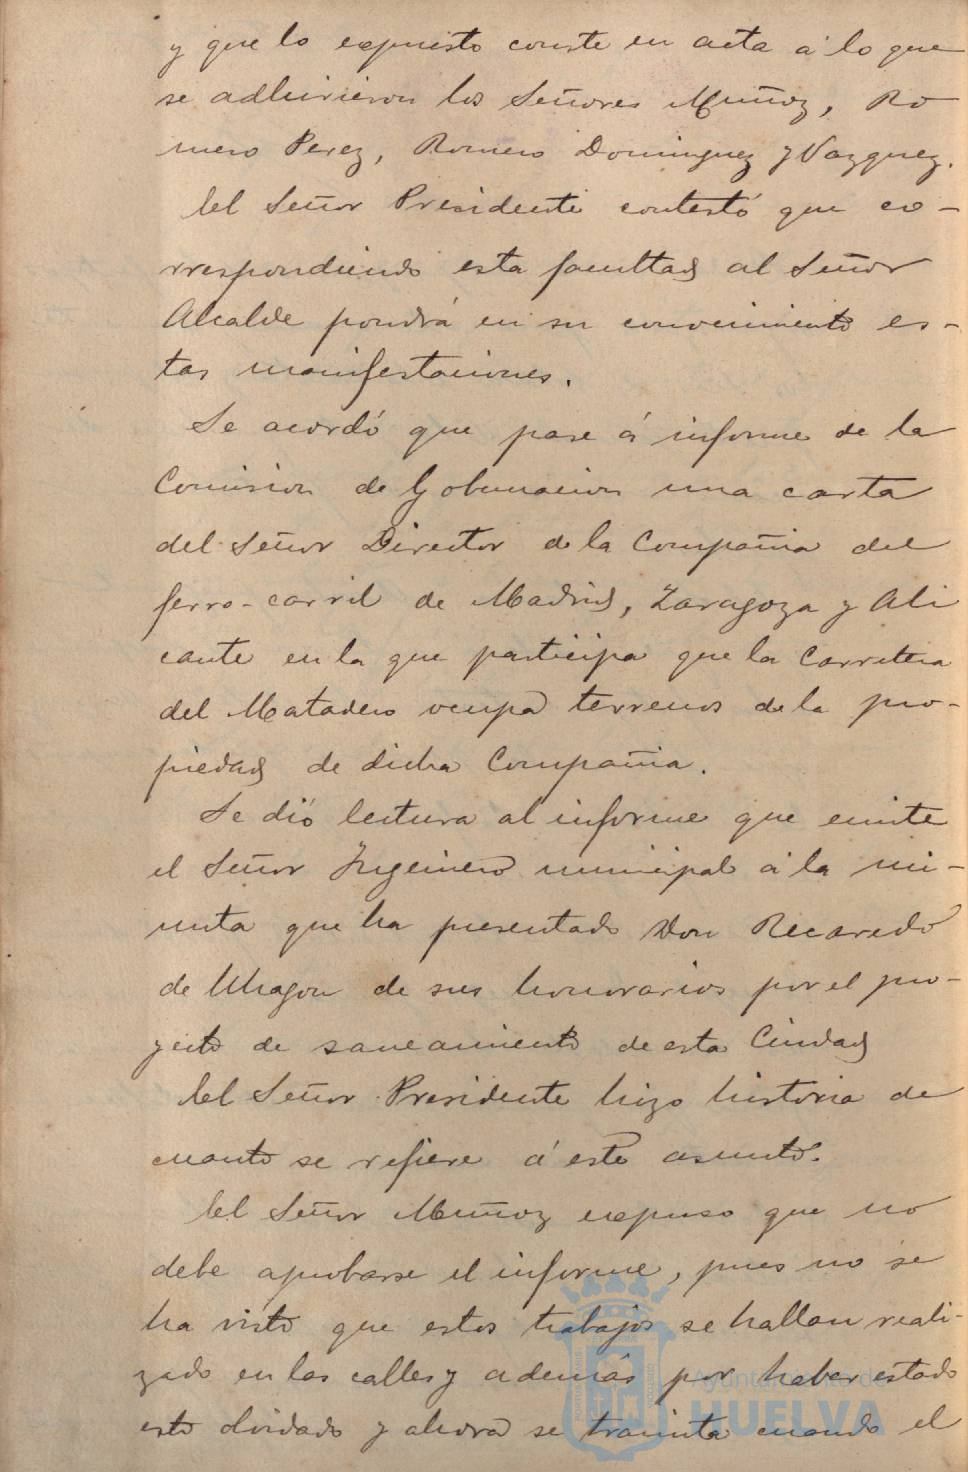 y que lo expuesto conste en acta á lo que
se adhirieron los Señores Muñoz, Ro
mero Perez, Romero Dominguez y Vazquez.
El Señor Presidente contestó que co-
rrespondiendo esta facultad al Señor
Alcalde pondrá en su conocimiento es-
tas manifestaciones.
Se acordó que pase á informe de la
Comision de Gobernacion una carta
del Señor Director de la Compañia del
ferro-carril de Madrid, Zaragoza y Ali
cante en la que participa que la Carretera
del Matadero ocupa terrenos de la pro-
piedad de dicha Compañia.
Se dió lectura al informe que emite
el Señor Ingeniero municipal á la mi-
nuta que ha presentado Don Recaredo
de Uhagon de sus honorarios por el pro-
yecto de saneamiento de esta Ciudad
El Señor Presidente hizo historia de
cuanto se refiere á este asunto.
El Señor Muñoz expuso que no
debe aprobarse el informe, pues no se
ha visto que estos trabajos se hallan reali-
zado en las calles y además por haber estado
esto olvidado y ahora se tramita cuando el
Ayuntamiento de
HUELVA